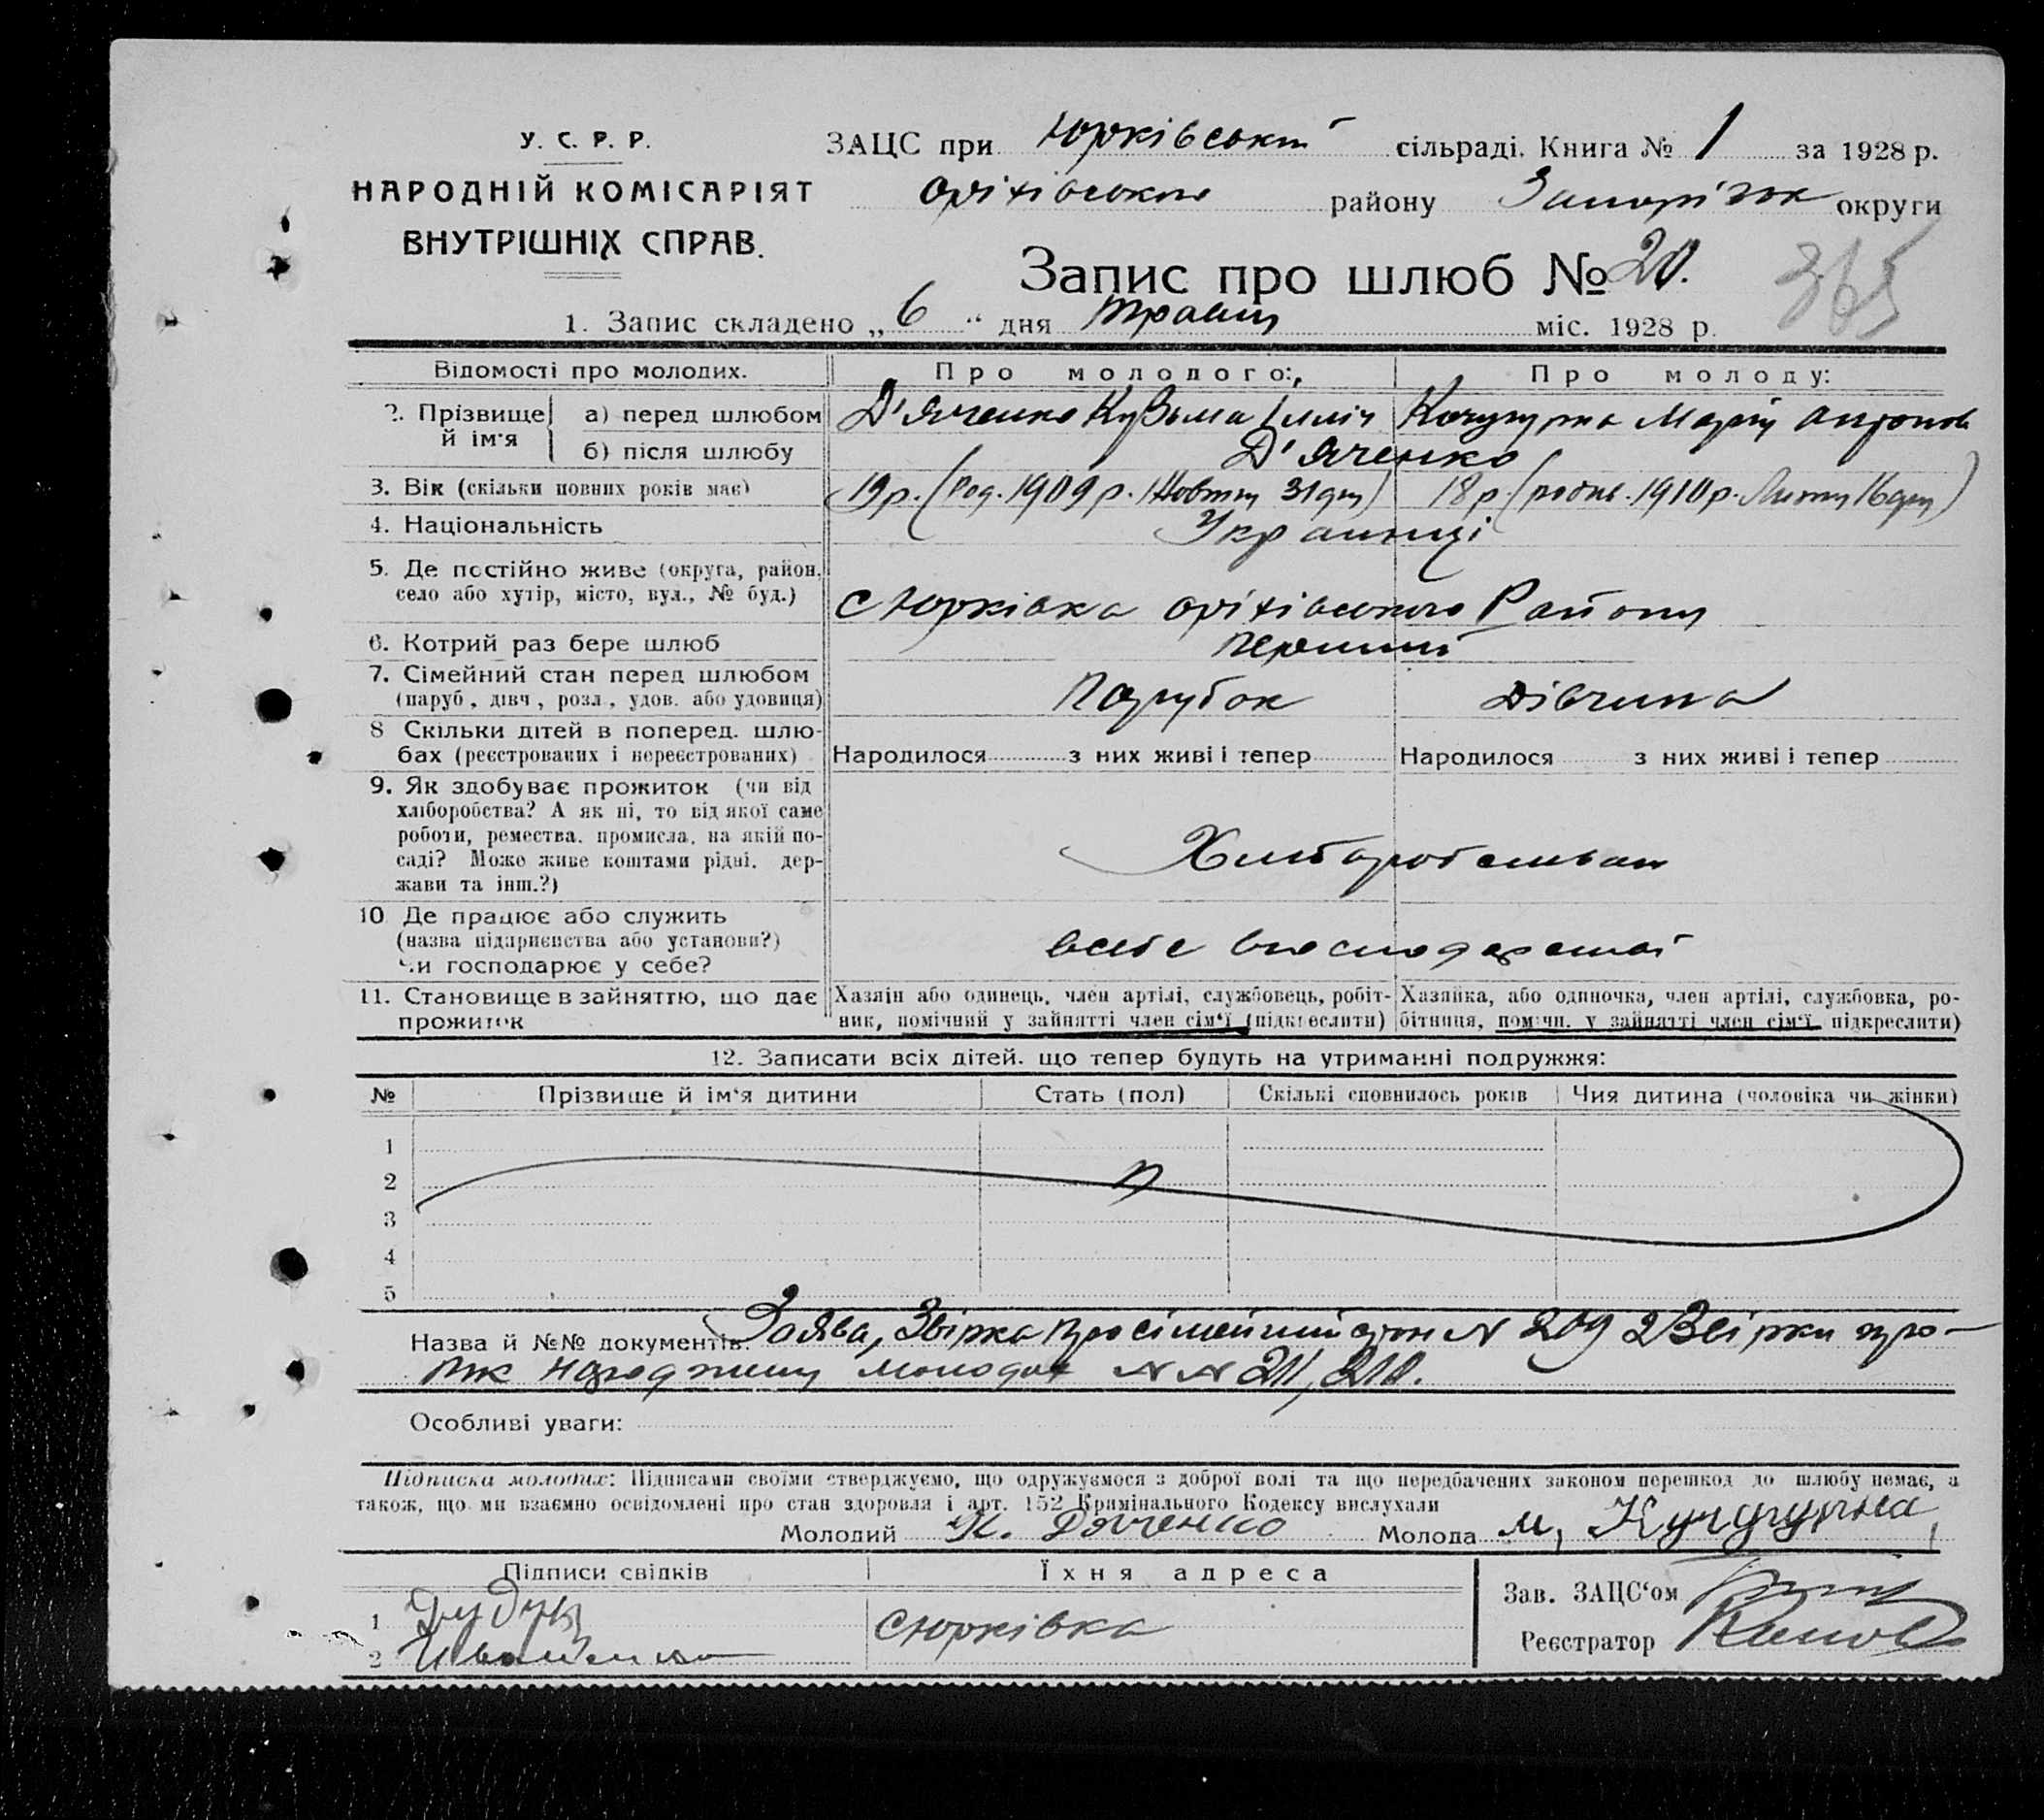 У. С. Р. Р.
НАРОДНІЙ КОМІСАРІЯТ
ВНУТРІШНІХ СПРАВ.
ЗАЦС при Юрківський сільраді. Книга № 1 за 1928 р.
Оріхівського району Запоріжж округи
Запис про шлюб № 20.
365
1. Запис складено „ 6 “ дня травня міс. 1928 р.
Відомості про молодих.
Про молодого:
Про молоду:
2. Прізвище й ім'я
а) перед шлюбом
Д'яченко Кузьма Ілліч
Марія Антонов
б) після шлюбу
Д'яченко
3. Вік (скільки повних років має)
19 р. (Род. 1909 р. Жовтня 31 дня)
18 р. (родив. 1910 р. Лютня 16 дня)
4. Національність
Украинці
5. Де постійно живе (округа, район, село або хутір, місто, вул., № буд.)
с Юрківка Оріхівського Району
6. Котрий раз бере шлюб
перший
7. Сімейний стан перед шлюбом
(паруб., дівч., розл., удов. або удовиця)
Парубок
Дівчина
8 Скільки дітей в поперед. шлю-
бах (реєстрованих і нереєстрованих)
Народилося з них живі і тепер
Народилося з них живі і тепер
9. Як здобуває прожиток (чи від
хліборобства? А як ні, то від якої саме
роботи, ремества, промисла, на якій по-
саді? Може живе коштами рідні, дер-
жави та інш.?)
10 Де працює або служить
(назва підприємства або установи?)
Чи господарює у себе?
всебе
11. Становище в зайняттю, що дає
прожиток
Хазяін або одинець, член артілі, службовець, робіт-
ник, помічний у зайнятті член сім'ї (підкреслити)
Хазяйка, або одиночка, член артілі, службовка, ро-
бітниця, помічн. у зайнятті член сім'ї підкреслити)
12. Записати всіх дітей, що тепер будуть на утриманні подружжя:
№ Прізвище й ім'я дитини Стать (пол) Скількі сповнилось років Чия дитина (чоловіка чи жінки)
1
2
3
4
5
Назва й №№ документів: Заява, Звірка про сімейний стан N 209 2 Звірки про-
народжину молодих N N 211, 210.
Особливі уваги:
Підписка молодих: Підписами своїми стверджуємо, що одружуємося з доброї волі та що передбачених законом перешкод до шлюбу немає, а
також, що ми взаємно освідомлені про стан здоровля і арт. 152 Кримінального Кодексу вислухали
Молодий К. Дяченко Молода М, Кучугурна
Підписи свідків
Їхня адреса
1
2
с Юрківка
Зав. ЗАЦС'ом
Реєстратор